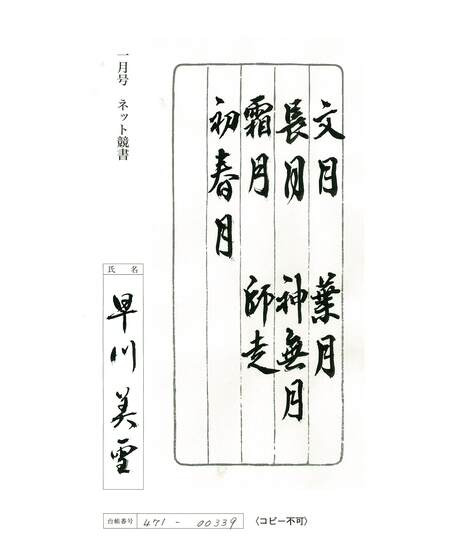 文月　葉月
長月　神無月
霜月　師走
初春月
一月号　ネット競書
氏　名
早川美雪
台帳番号 471 - 00339 （コピー不可）